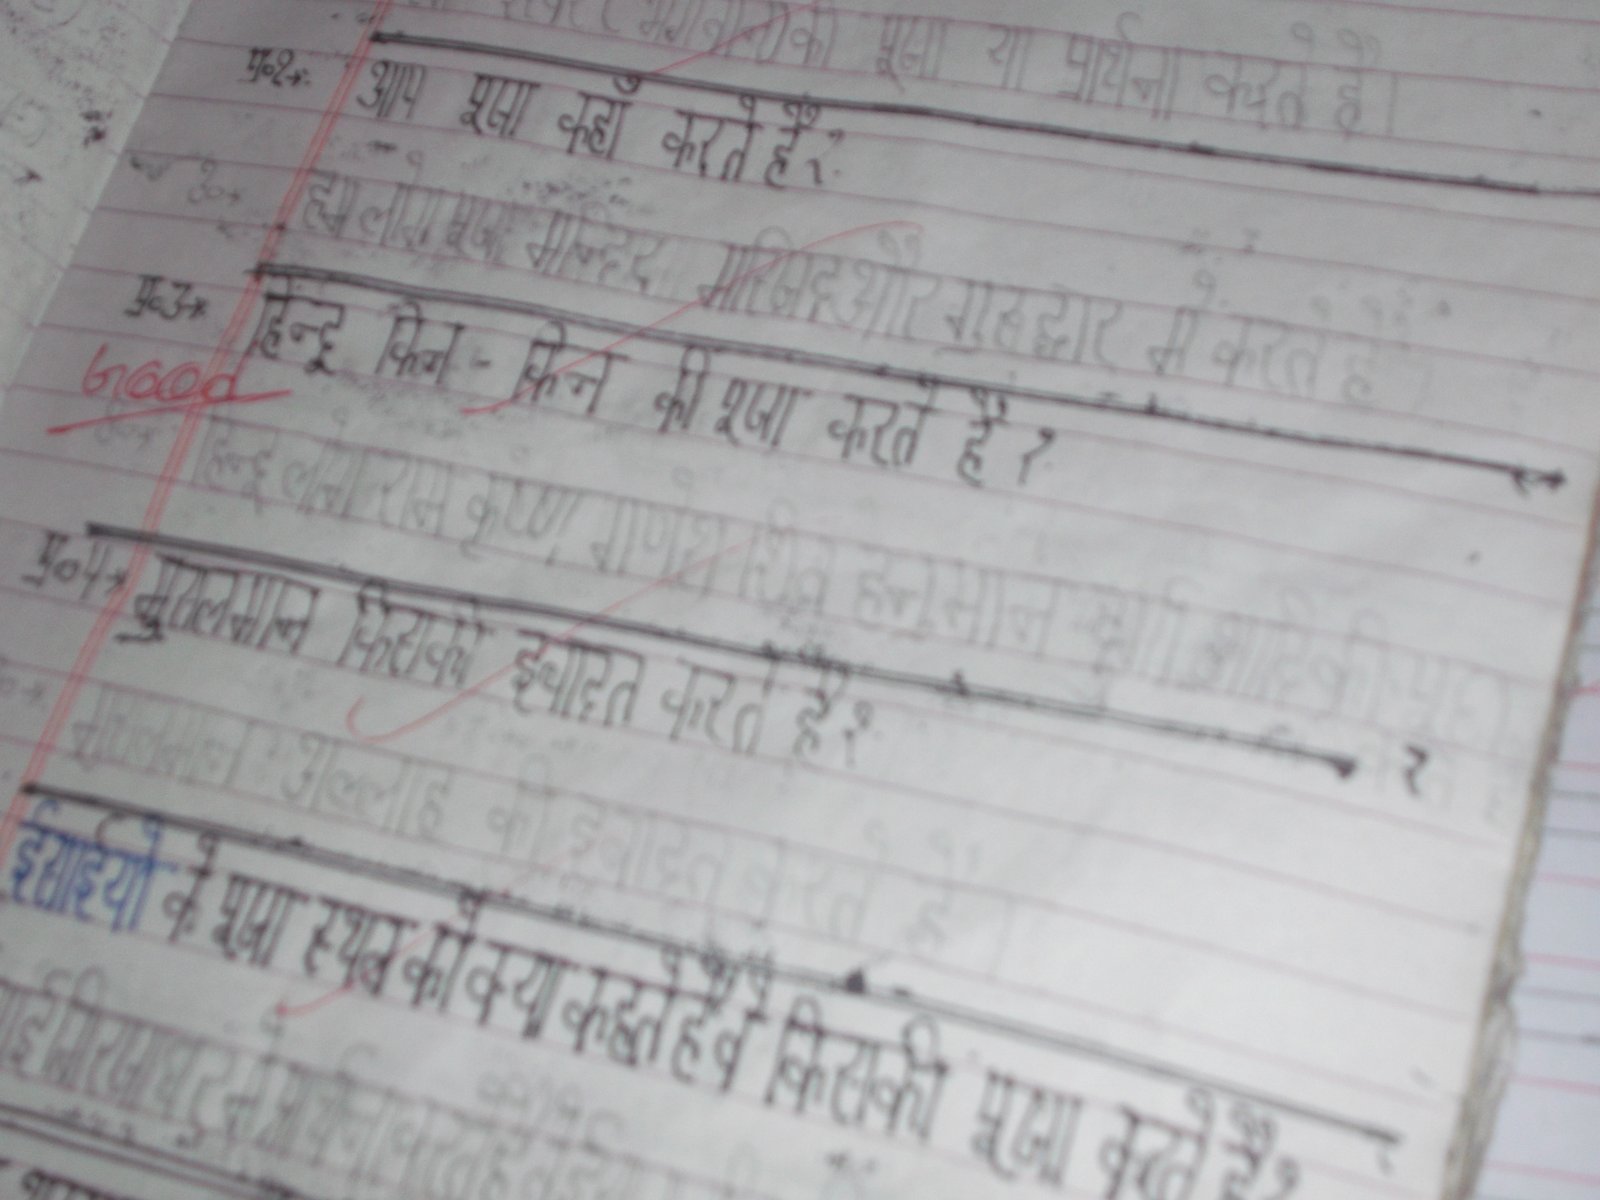 की पूजा या प्रार्थना करते है।
प्र०२→ आप पूजा कहाँ करते हैं?
हम लोग पूजा मन्दिर मस्जिद और गुरुद्वार में करते हैं
प्र०३→ हिन्दू किन - किन की पूजा करते हैं?
Good
हिन्दू लोग राम कृष्ण गणेश शिव हनुमान दुर्गा आदि की पूजा
प्र०५→ मुसलमान किसकी इबादत करते हैं?
मुसलमान अल्लाह की इबादत करते हैं।
ईसाईयों के पूजा स्थल को क्या कहते है वे किसकी पूजा करते हैं?